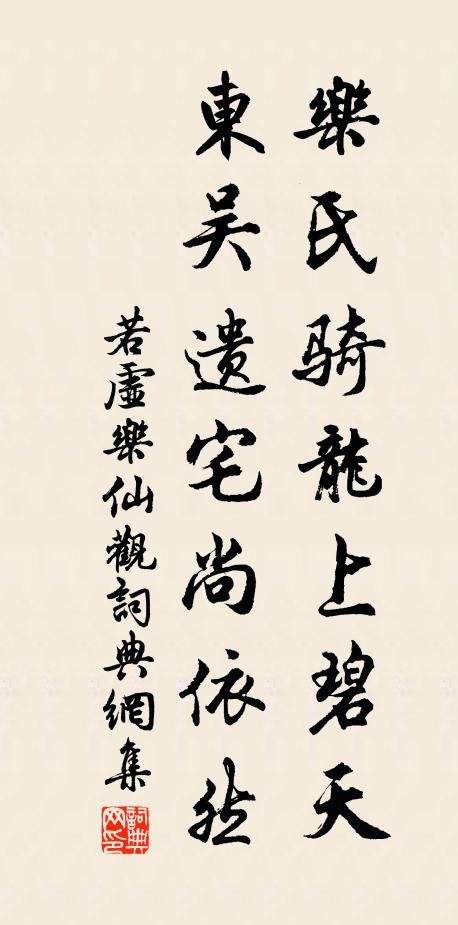 樂氏骑龍上碧天
東吴遺宅尚依然
若虛樂仙觀詞典網集
詞典网印